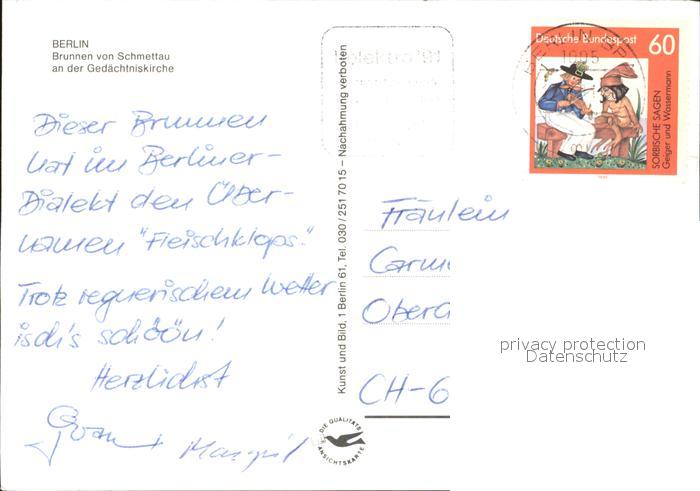 BERLIN
Brunnen von Schmettau
an der Gedächtniskirche
Dieser Brunnen
hat im Berliner-
Dialekt den Über-
namen "Fleischklops."
Trotz regnerischem Wetter
isch's schöön!
Herzlichst
Margrit
Kunst und Bild, 1 Berlin 61, Tel. 030/251 70 15 – Nachahmung verboten
DIE QUALITÄTS
ANSICHTSKARTE
Deutsche Bundespost
60
SORBISCHE SAGEN
Geiger und Wassermann
BERLIN
1000
Fräulein
CH-6
privacy protection
Datenschutz